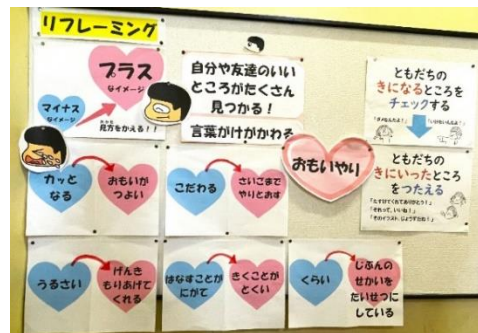 リフレーミング
プラス
なイメージ
マイナス
なイメージ
見方をかえる!!
自分や友達のいい
ところがたくさん
見つかる!
言葉がけがかわる
ともだちの
きになるところを
チェックする
おもいやり
ともだちの
きにいったところ
をつたえる
「たすけてくれてありがとう!」
「それって、いいね!」
「そのイラスト、じょうずだね!」
カッと
なる
おもいが
つよい
こだわる
さいごまで
やりとおす
うるさい
げんき
もりあげて
くれる
はなすことが
にがて
きくことが
とくい
くらい
じぶんの
せかいを
たいせつに
している